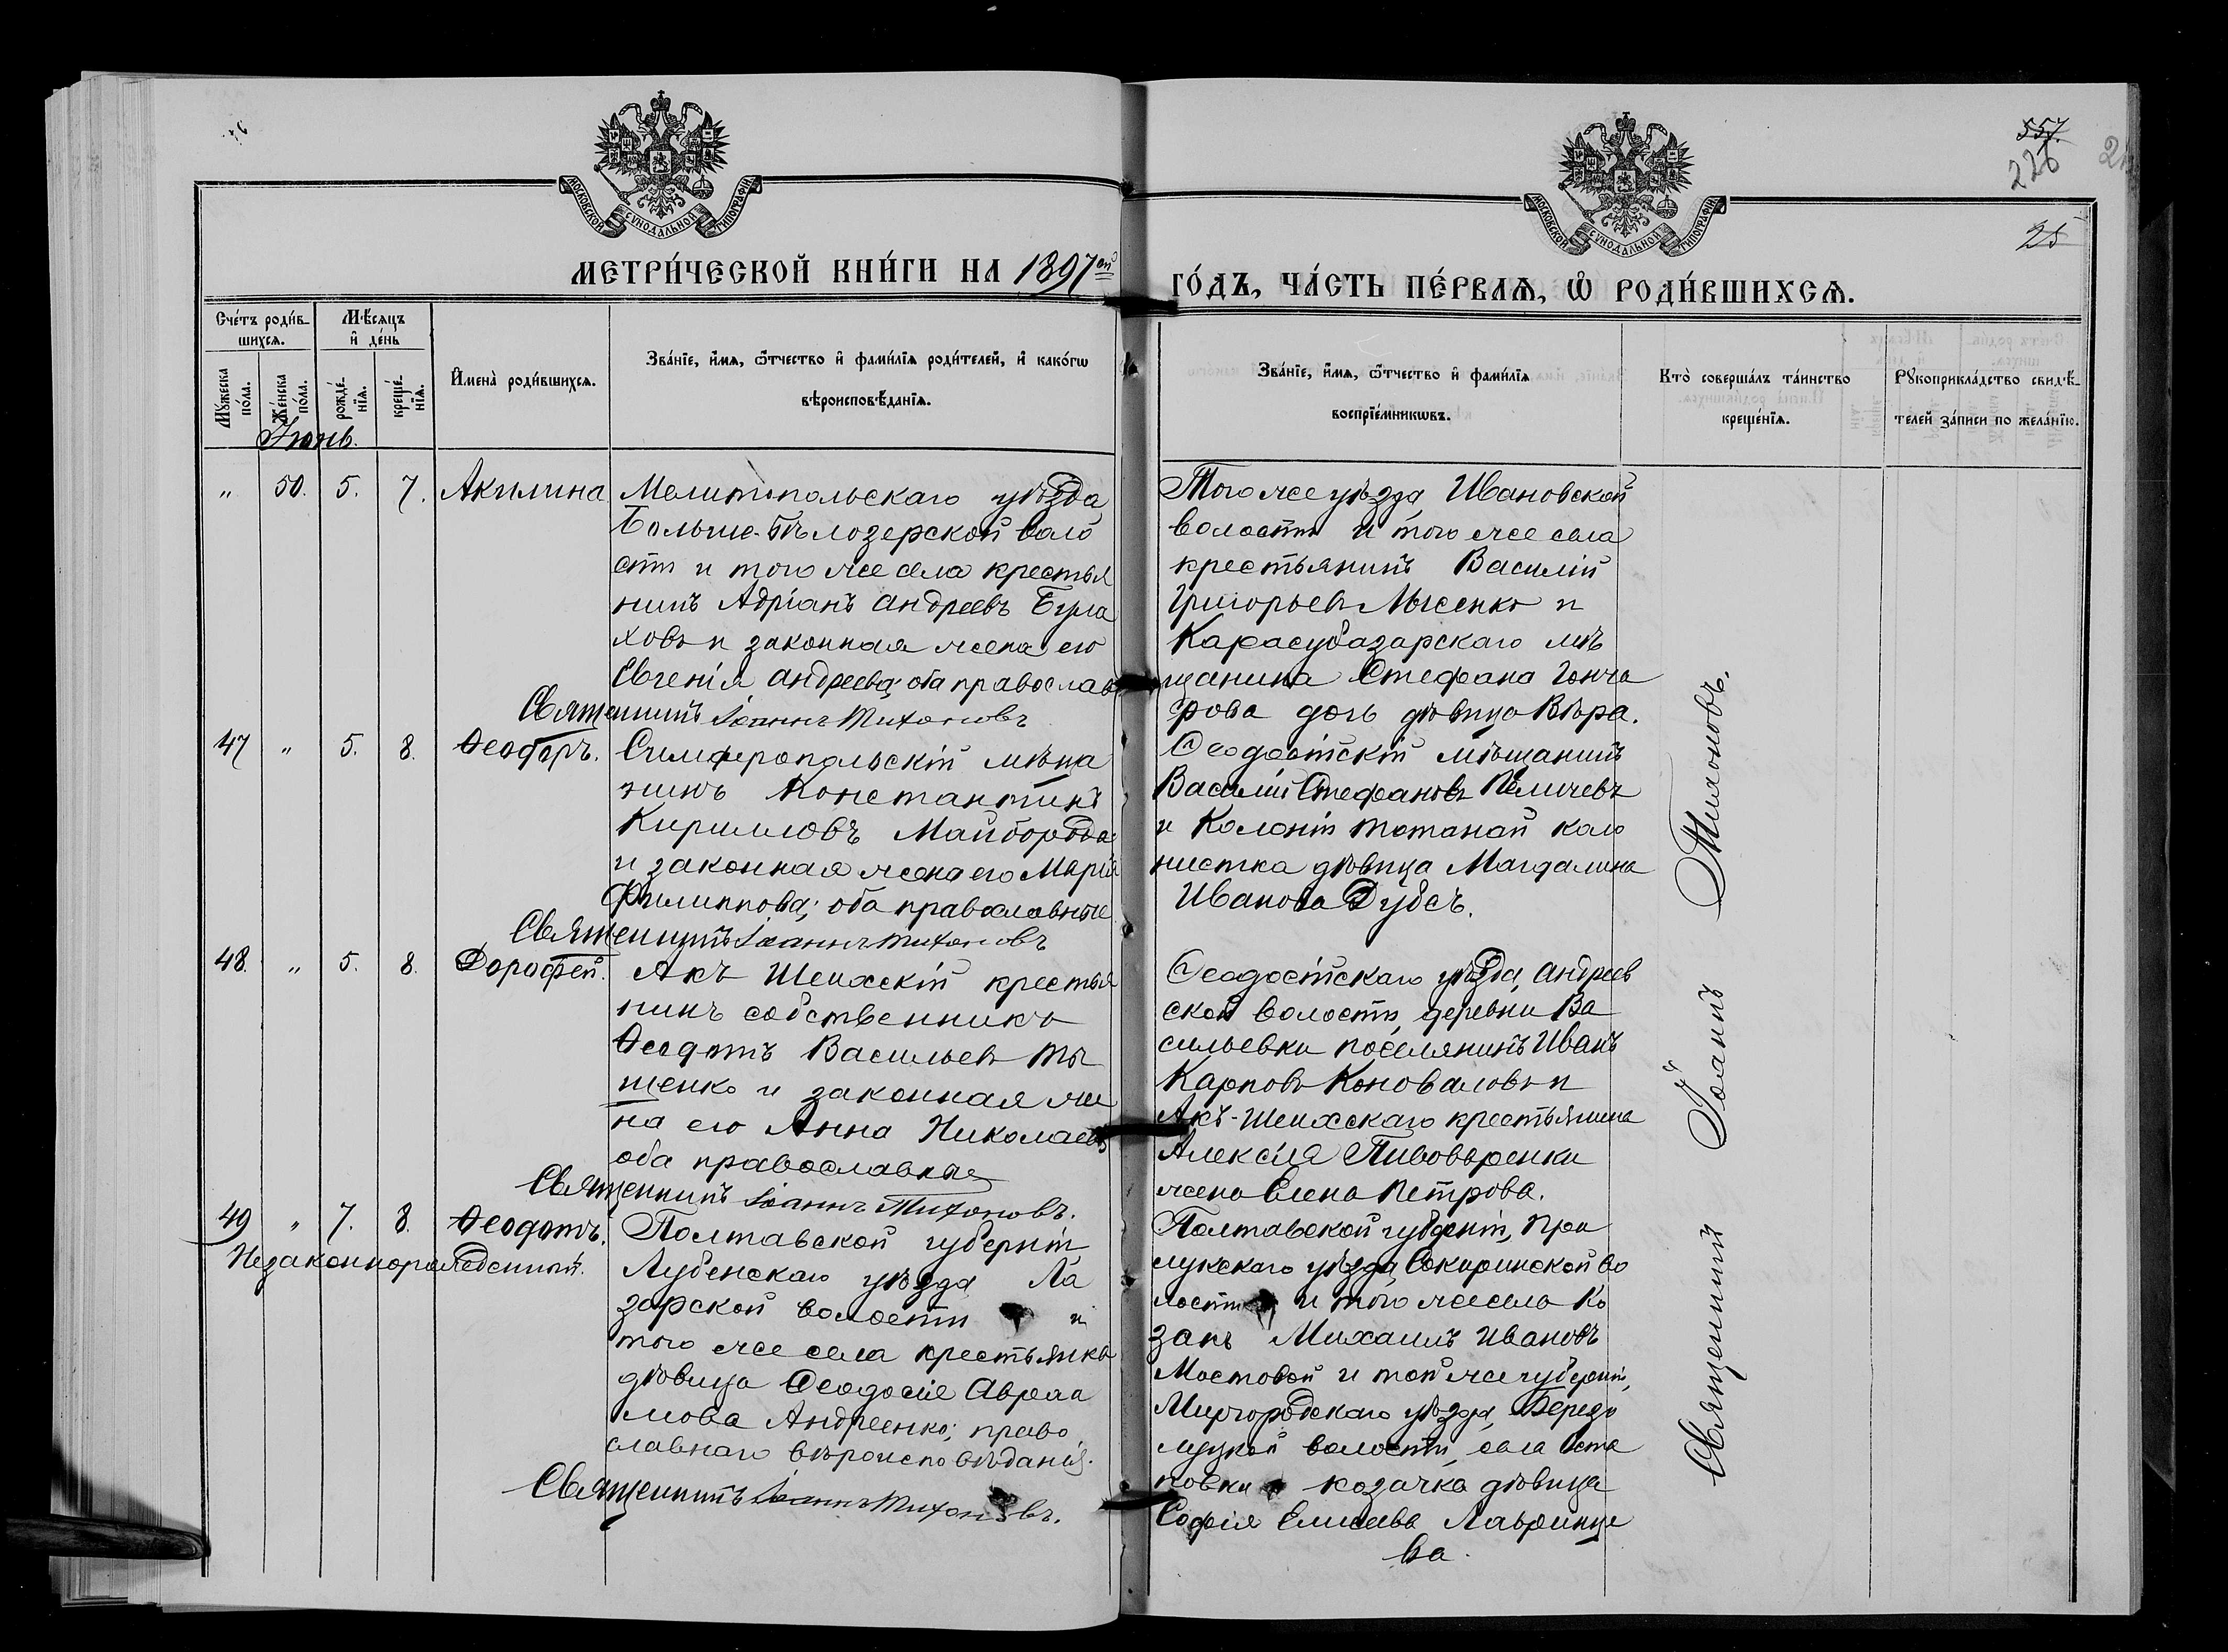 557.
226
25
МОСКОВСКОЙ СѴНОДАЛЬНОЙ ТИПОГРАФІИ
МОСКОВСКОЙ СѴНОДАЛЬНОЙ ТИПОГРАФІИ
МЕТРИ́ЧЕСКОЙ КНИ́ГИ НА 1897ой ГО́ДЪ, ЧА́СТЬ ПЕ́РВАѦ, Ѡ РОДИ́ВШИХСѦ.
Сче́тъ роди́в-
шихсѧ.
Мѣ́сѧцъ
и҆ де́нь
Мꙋ́жеска
по́ла.
Же́нска
по́ла.
рожде́-
нїѧ.
креще́-
нїѧ.
И҆мена̀ роди́вшихсѧ.
Зва́нїе, и҆́мѧ, ѻ҆́тчество и҆ фами́лїѧ роди́телей, и҆ како́гѡ
вѣроисповѣ́данїѧ.
Зва́нїе, и҆́мѧ, ѻ҆́тчество и҆ фами́лїѧ
воспрїе́мникѡвъ.
Кто̀ соверша́лъ та́инство
креще́нїѧ.
Рꙋкоприкла́дство свидѣ́-
телей за́писи по жела́нїю.
Іюнь.
" 50. 5. 7. Акилина
Мелитопольскаго уѣзда
Больше-Бѣлозерской воло
сти и того же села крестья
нинъ Адріанъ Андреевъ Була
ховъ и законная жена его
Евгенія Андреева; оба православ
Священникъ Іоаннъ Тихоновъ
Того же уѣзда Ивановской
волости и того же села
крестьянинъ Василій
Григорьевъ Лысенко и
Карасубазарскаго мѣ
щанина Стефана Гонча
рова дочь дѣвица Вѣра.
47 " 5. 8. Ѳеодоръ.
Симферопольскій мѣща
нинъ Константинъ
Кирилловъ Майборода
и законная жена его Марія
Филиппова; оба православные
Священникъ Іоаннъ Тихоновъ
Ѳеодосійскій мѣщанинъ
Василій Стефановъ
и Колоніи Тотанай коло
нистка дѣвица Магдалина
Иванова Дубсъ.
48. " 5. 8. Дорофей.
Акъ Шеихскій крестья
нинъ собственникъ
Ѳеодотъ Васильевъ Ты
щенко и законная же
на его Анна Николаева
оба православные
Священникъ Іоаннъ Тихоновъ.
Ѳеодосійскаго уѣзда, Андреев
ской волости, деревни Ва
сильевки поселянинъ Иванъ
Карповъ Коноваловъ и
Акъ-Шеихскаго крестьянина
Алексія Пивоваренки
жена Елена Петрова.
49 " 7. 8. Ѳеодотъ.
Незаконнорожденный.
Полтавской губерніи,
Лубенскаго уѣзда Ла
зорской волости и
того же села крестьянка
дѣвица Ѳеодосія Авраа
мова Андреенко; право
славнаго вѣроисповѣданія.
Священникъ Іоаннъ Тихоновъ.
Полтавской губерніи, При
лукскаго уѣзда, Сокиринской во
лости и того же села ко
закъ Михаилъ Ивановъ
Мостовой и той же губерніи,
Миргородскаго уѣзда, Березо
луцкой волости, села Оста
повки козачка дѣвица
Софія Елисеева Лавринце
ва.
Священникъ Іоаннъ Тихоновъ.